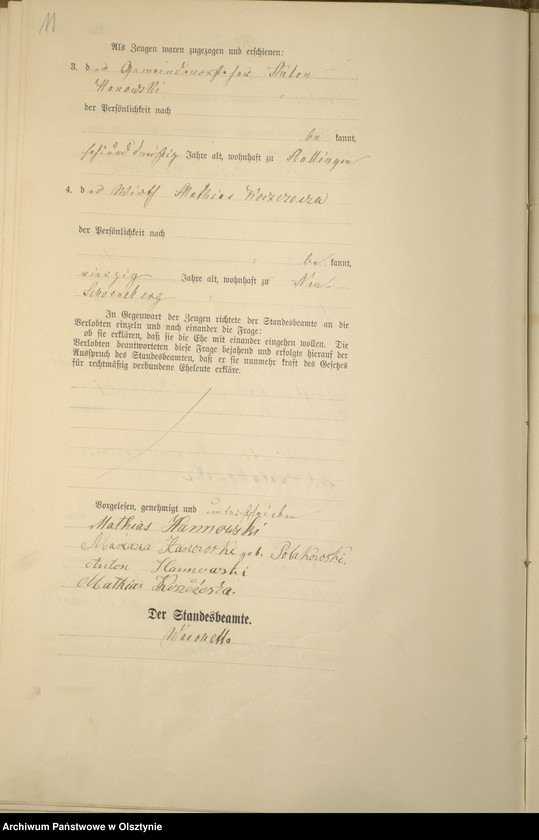 11
Als Zeugen waren zugezogen und erschienen:
3. der Gemeindevorsteher Anton
Hanowski
der Persönlichkeit nach
be kannt,
Jahre alt, wohnhaft zu Rattingen
4. der Wirth Mathias Korzczosza
der Persönlichkeit nach
be kannt,
vierzig Jahre alt, wohnhaft zu Neu-
Schoeneberg
In Gegenwart der Zeugen richtete der Standesbeamte an die
Verlobten einzeln und nach einander die Frage:
ob sie erklären, daß sie die Ehe mit einander eingehen wollen. Die
Verlobten beantworteten diese Frage bejahend und erfolgte hierauf der
Ausspruch des Standesbeamten, daß er sie nunmehr kraft des Gesetzes
für rechtmäßig verbundene Eheleute erkläre.
Vorgelesen, genehmigt und unterschrieben
Mathias Hannowski
geb.
Anton Hannowski
Mathias
Der Standesbeamte.
Archiwum Państwowe w Olsztynie